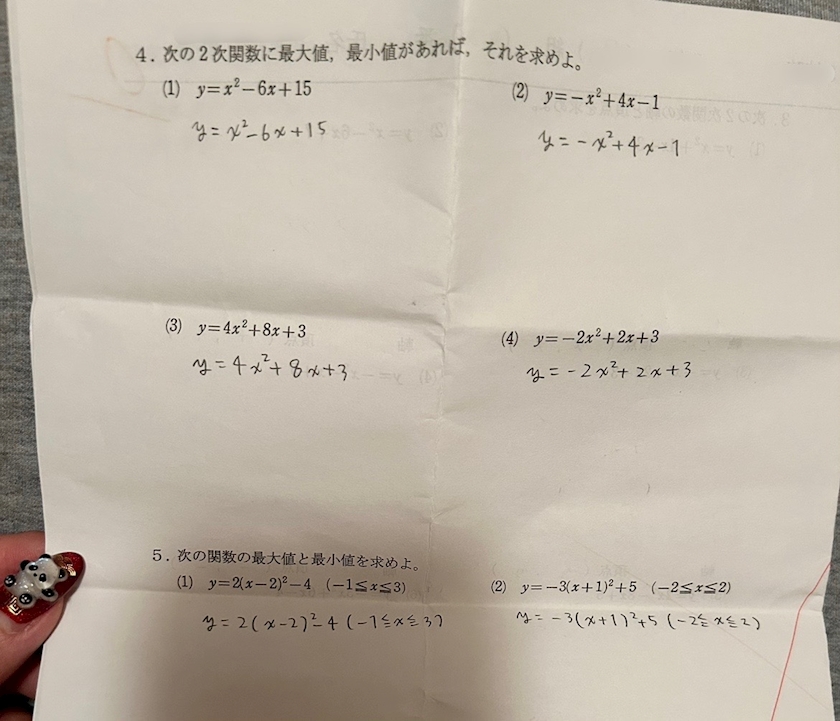 4. 次の2次関数に最大値，最小値があれば，それを求めよ。
(1) y=x²−6x+15
(2) y=−x²+4x−1
y=x²−6x+15
y=−x²+4x−1
(3) y=4x²+8x+3
(4) y=−2x²+2x+3
y=4x²+8x+3
y=−2x²+2x+3
5. 次の関数の最大値と最小値を求めよ。
(1) y=2(x−2)²−4 (−1≦x≦3)
(2) y=−3(x+1)²+5 (−2≦x≦2)
y=2(x−2)²−4(−1≦x≦3)
y=−3(x+1)²+5(−2≦x≦2)